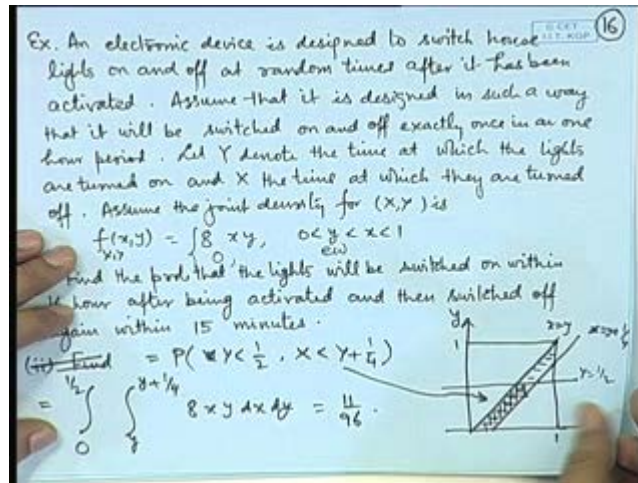 16
Ex. An electronic device is designed to switch house
lights on and off at random times after it has been
activated. Assume that it is designed in such a way
that it will be switched on and off exactly once in an one
hour period. Let Y denote the time at which the lights
are turned on and X the time at which they are turned
off. Assume the joint density for (X,Y) is
f(x,y) = { 8 xy, 0<y<x<1
X,Y 0, ew
Find the prob. that the lights will be switched on within
hour after being activated and then switched off
again within 15 minutes.
(ii) Find = P( Y < 1/2 , X < Y + 1/4 )
= ∫₀^{1/2} ∫_y^{y+1/4} 8 x y dx dy = 11/96 .
y
1
x=y
x=y+1/4
Y=1/2
1